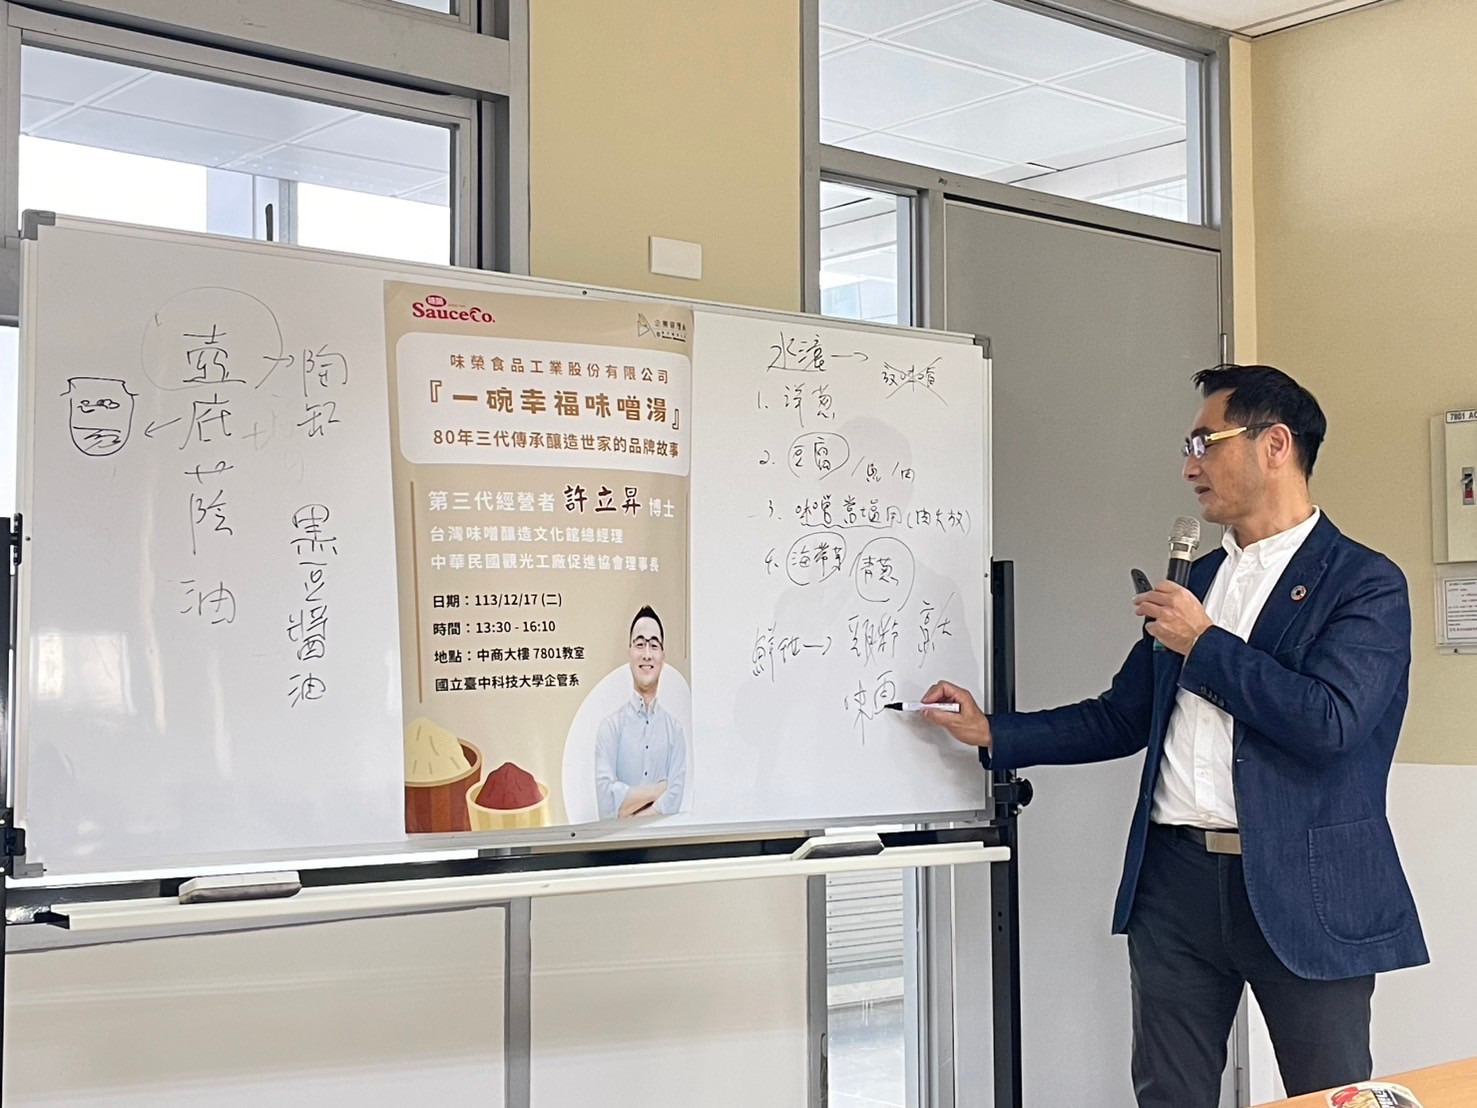 壺底蔭油
陶缸
黑豆醬油
SauceCo.
味榮食品工業股份有限公司
『一碗幸福味噌湯』
80年三代傳承釀造世家的品牌故事
第三代經營者 許立昇 博士
台灣味噌釀造文化館總經理
中華民國觀光工廠促進協會理事長
日期：113/12/17 (二)
時間：13:30 - 16:10
地點：中商大樓 7801教室
國立臺中科技大學企管系
水滾→
放味噌
1. 洋蔥
2. 豆腐/魚/肉
3. 味噌
4. 海帶芽 青蔥
7801